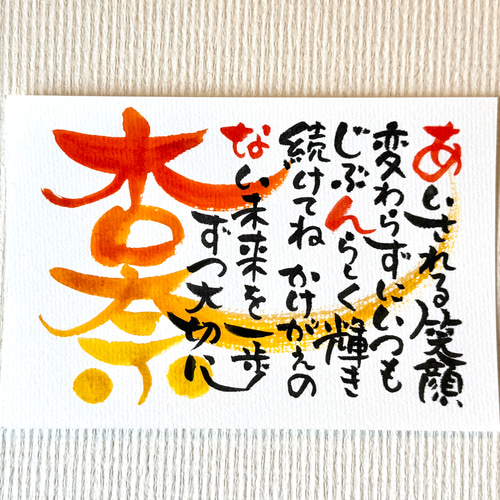 杏奈
あいされる笑顔
変わらずにいつも
じぶんらしく輝き
続けてね かけがえの
ない未来を一歩
ずつ大切に